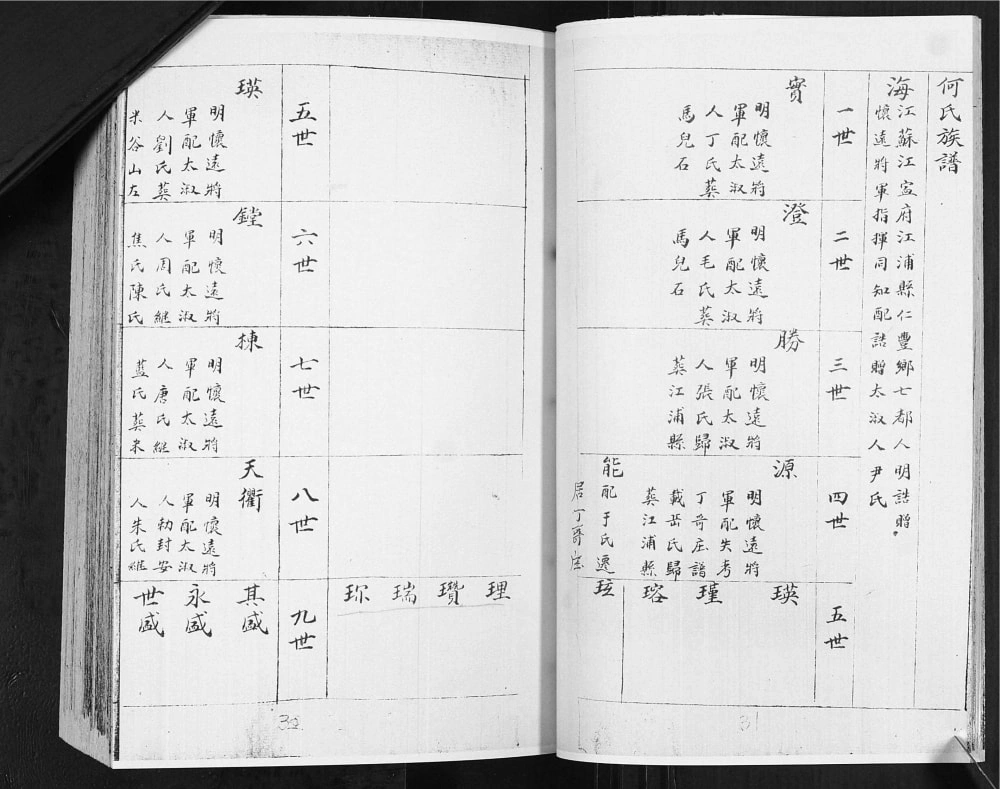 何氏族譜
海
江蘇江宣府江浦縣仁豐鄉七都人明誥贈
懷遠將軍指揮同知配誥贈太淑人尹氏
一世
實
明懷遠將
軍配太淑
人丁氏葬
馬兒石
二世
澄
明懷遠將
軍配太淑
人毛氏葬
馬兒石
三世
勝
明懷遠將
軍配太淑
人張氏歸
葬江浦縣
四世
源
明懷遠將
軍配失考
丁哥庄譜
載岳氏歸
葬江浦縣
能
配于氏遷
居丁哥庄
五世
瑛
瑾
瑢
玹
理
瓚
瑞
珎
31
五世
瑛
明懷遠將
軍配太淑
人劉氏葬
米谷山左
六世
鏜
明懷遠將
軍配太淑
人周氏継
焦氏陳氏
七世
棟
明懷遠將
軍配太淑
人唐氏継
藍氏葬米
八世
天衢
明懷遠將
軍配太淑
人勅封安
人朱氏継
九世
其盛
永盛
世盛
32